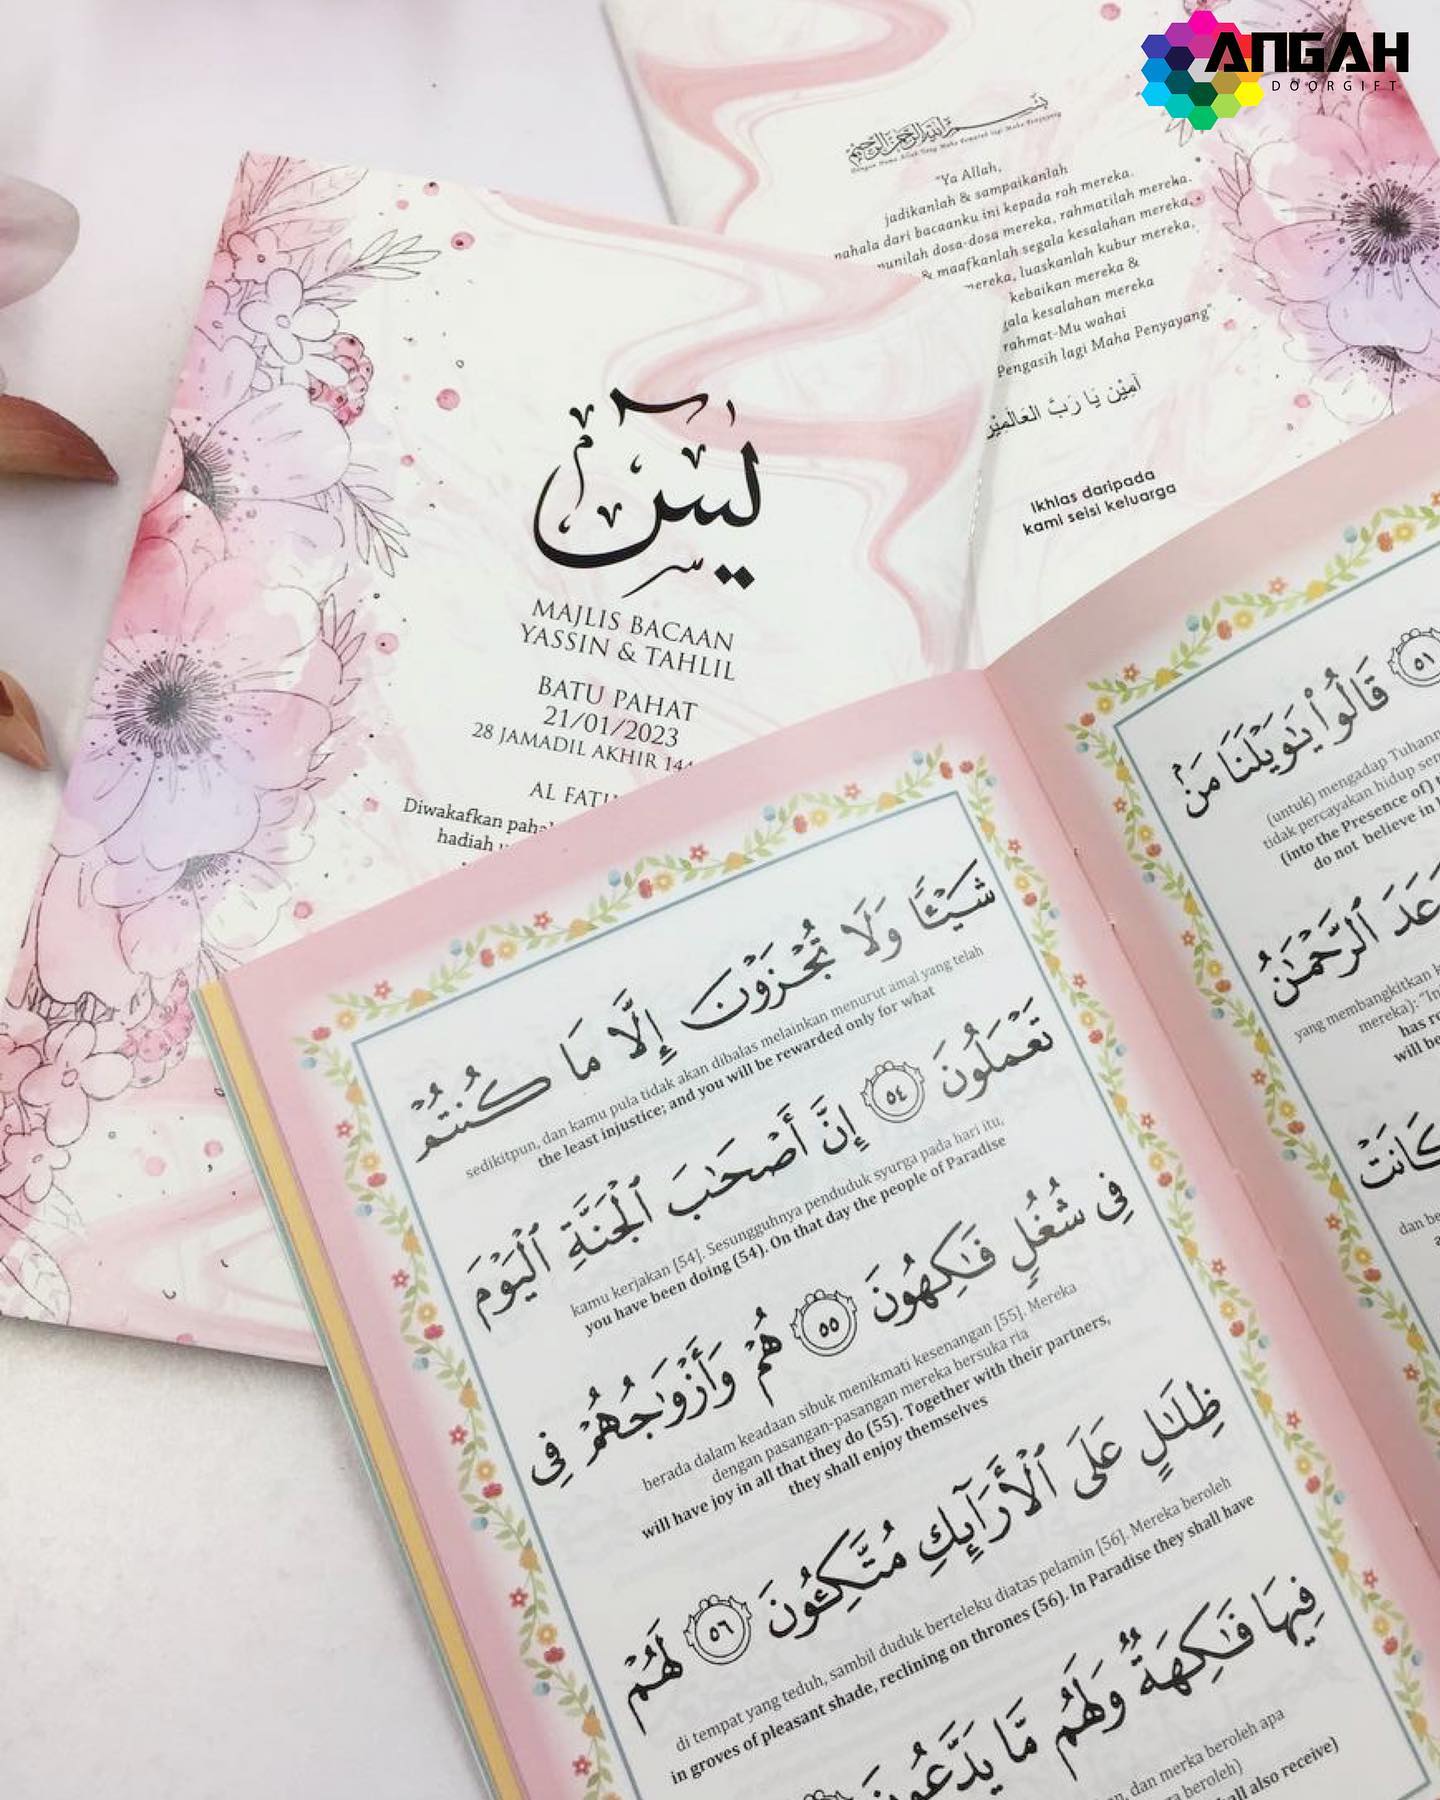 ANGAH
DOORGIFT
"Ya Allah,
jadikanlah & sampaikanlah
pahala dari bacaanku ini kepada roh mereka.
dosa-dosa mereka, rahmatilah mereka.
& maafkanlah segala kesalahan mereka,
luaskanlah kubur mereka,
kebaikan mereka &
kesalahan mereka
rahmat-Mu wahai
Pengasih lagi Maha Penyayang"
آمِيْن يَا رَبَّ العَالَمِيْن
Ikhlas daripada
kami seisi keluarga
يس
MAJLIS BACAAN
YASSIN & TAHLIL
BATU PAHAT
21/01/2023
28 JAMADIL AKHIR
AL
Diwakafkan
hadiah
شَيْـًٔا وَلَا تُجْزَوْنَ إِلَّا مَا كُنتُمْ
sedikitpun, dan kamu pula tidak akan dibalas melainkan menurut amal yang telah
the least injustice; and you will be rewarded only for what
تَعْمَلُونَ ٥٤ إِنَّ أَصْحَٰبَ ٱلْجَنَّةِ ٱلْيَوْمَ
kamu kerjakan [54]. Sesungguhnya penduduk syurga pada hari itu,
you have been doing (54). On that day the people of Paradise
فِى شُغُلٍ فَٰكِهُونَ ٥٥ هُمْ وَأَزْوَٰجُهُمْ فِى
berada dalam keadaan sibuk menikmati kesenangan [55]. Mereka
dengan pasangan-pasangan mereka bersuka ria
will have joy in all that they do (55). Together with their partners,
they shall enjoy themselves
ظِلَٰلٍ عَلَى ٱلْأَرَآئِكِ مُتَّكِـُٔونَ ٥٦ لَهُمْ
di tempat yang teduh, sambil duduk berteleku diatas pelamin [56]. Mereka beroleh
in groves of pleasant shade, reclining on thrones (56). In Paradise they shall have
فِيهَا فَٰكِهَةٌ وَلَهُم مَّا يَدَّعُونَ
dan merka beroleh apa
beroleh)
also receive)
٥١ قَالُوا۟ يَٰوَيْلَنَا مَنۢ
(untuk) mengadap
tidak percayakan hidup
(into the Presence of)
do not believe in
وَعَدَ ٱلرَّحْمَٰنُ
yang membangkitkan
mereka):
has
will be
كَانَتْ
dan